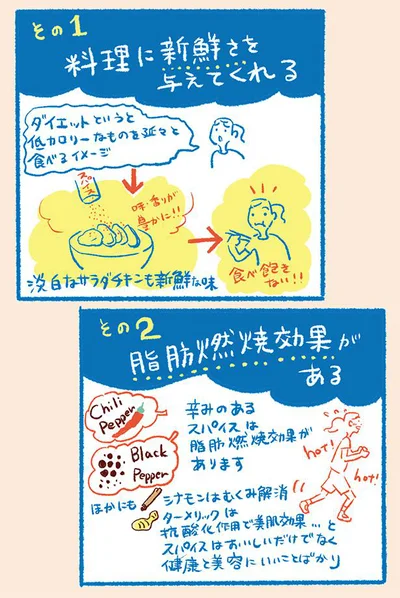 その1
料理に新鮮さを
与えてくれる
ダイエットというと
低カロリーなものを延々と
食べるイメージ
スパイス
味・香りが
豊かに!!
食べ飽き
ない!!
淡白なサラダチキンも新鮮な味
その2
脂肪燃焼効果が
ある
Chili
Pepper
Black
Pepper
辛みのある
スパイスは
脂肪燃焼効果が
あります
hot!
hot!
ほかにも
シナモンはむくみ解消
ターメリックは
抗酸化作用で美肌効果…と
スパイスはおいしいだけでなく
健康と美容にいいことばかり